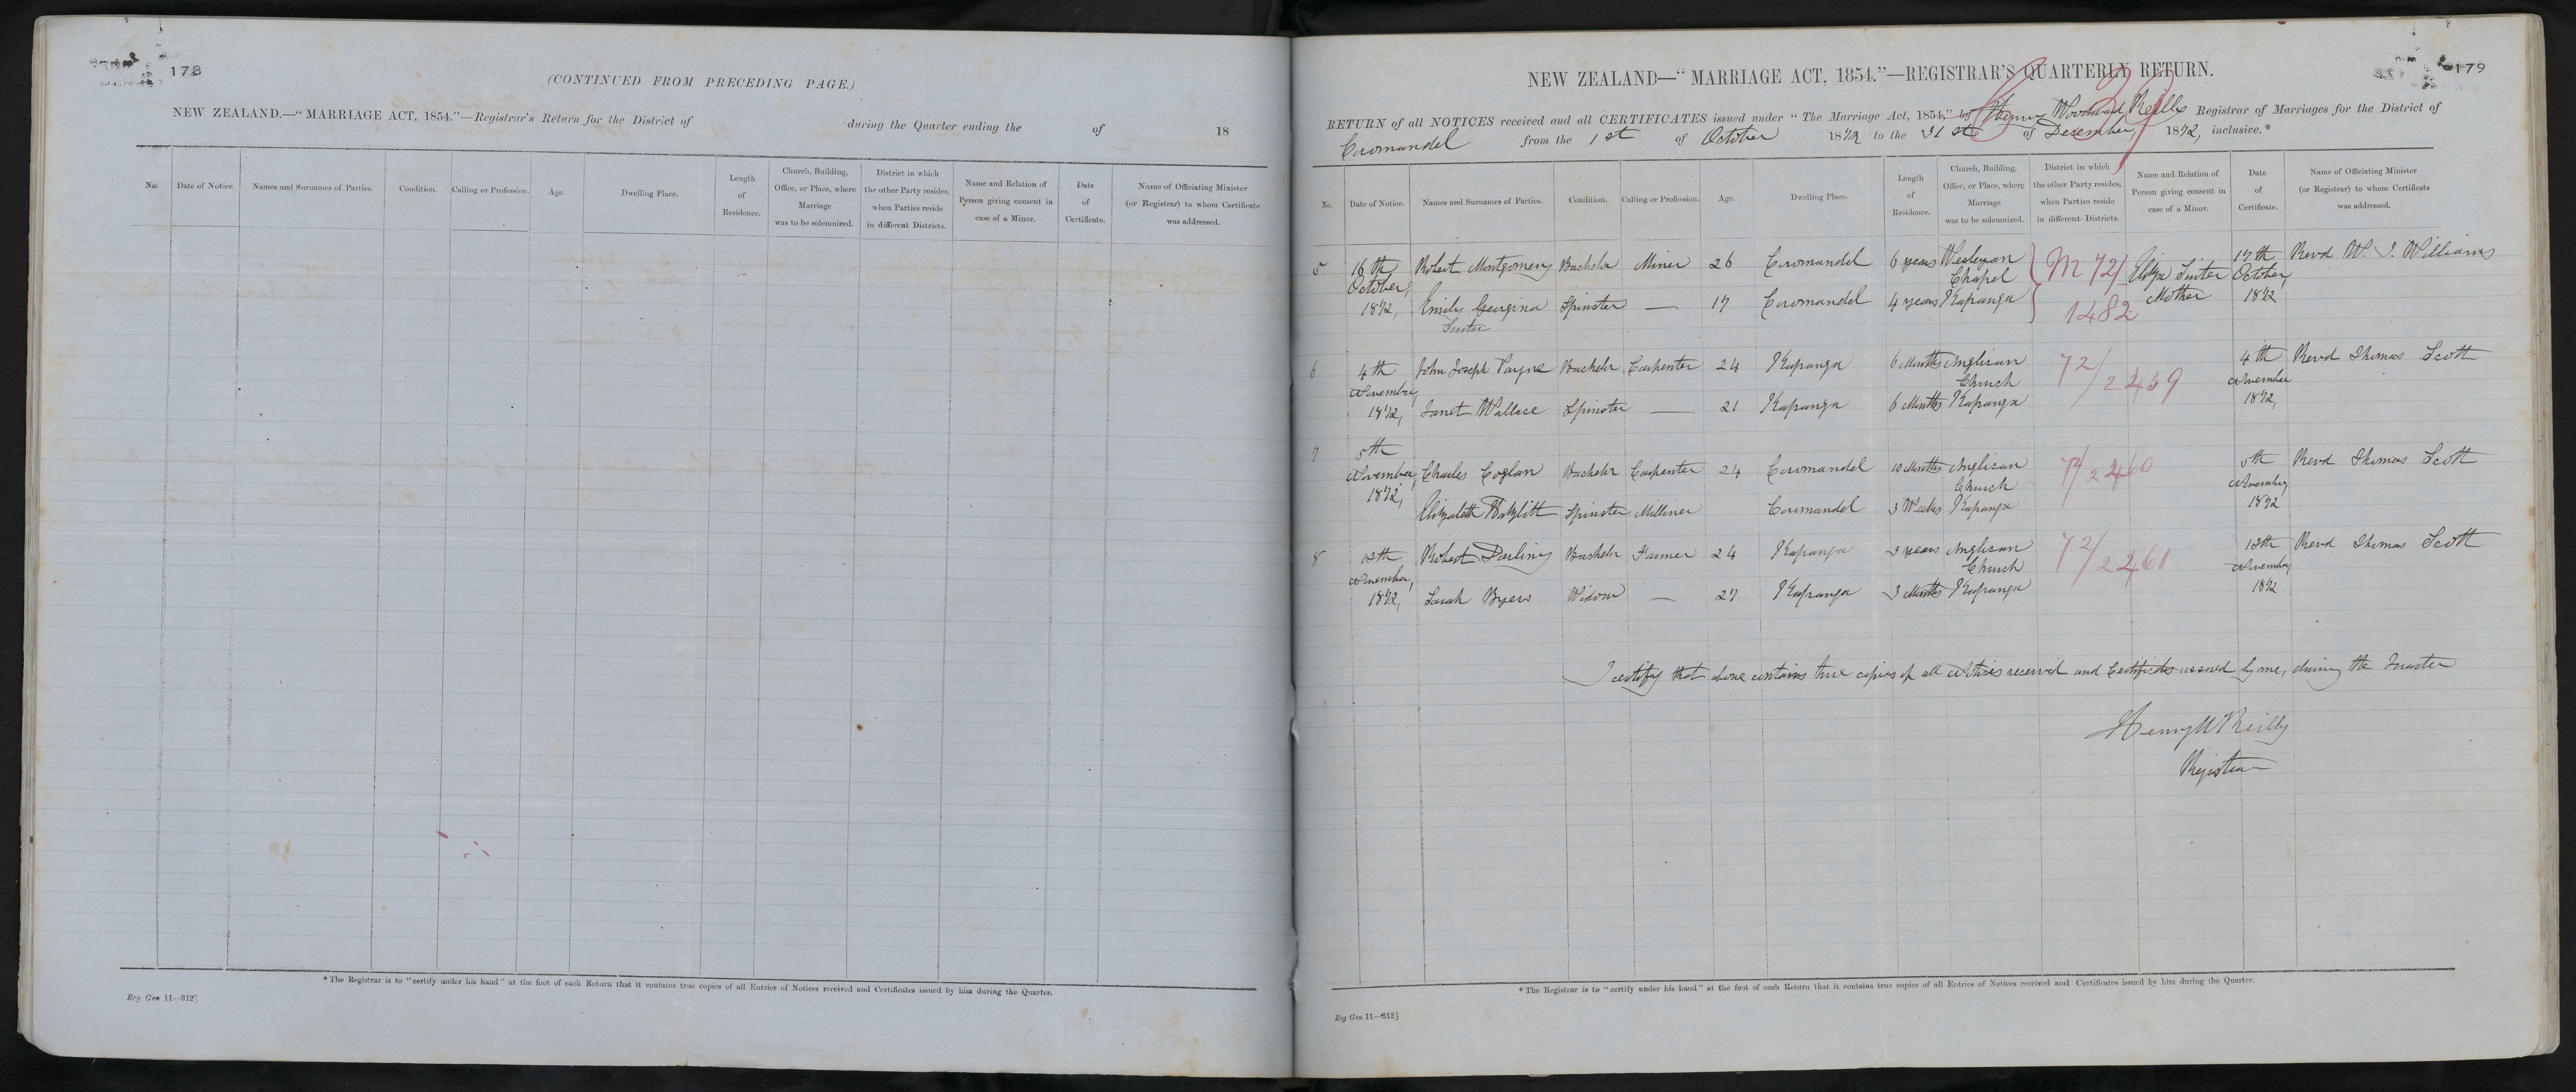 178
(CONTINUED FROM PRECEDING PAGE.)
NEW ZEALAND.—"MARRIAGE ACT, 1854."—Registrar's Return for the District of during the Quarter ending the of 18
No. Date of Notice. Names and Surnames of Parties. Condition. Calling or Profession. Age. Dwelling Place. Length of Residence. Church, Building, Office, or Place, where Marriage was to be solemnized. District in which the other Party resides, when Parties reside in different Districts. Name and Relation of Person giving consent in case of a Minor. Date of Certificate. Name of Officiating Minister (or Registrar) to whom Certificate was addressed.
* The Registrar is to "certify under his hand" at the foot of each Return that it contains true copies of all Entries of Notices received and Certificates issued by him during the Quarter.
Reg Gen 11—312]
179
NEW ZEALAND—"MARRIAGE ACT, 1854."—REGISTRAR'S QUARTERLY RETURN.
RETURN of all NOTICES received and all CERTIFICATES issued under "The Marriage Act, 1854," by Henry Woodward Reilly Registrar of Marriages for the District of
Coromandel from the 1st of October 1872 to the 31st of December, 1872, inclusive.*
No. Date of Notice. Names and Surnames of Parties. Condition. Calling or Profession. Age. Dwelling Place. Length of Residence. Church, Building, Office, or Place, where Marriage was to be solemnized. District in which the other Party resides, when Parties reside in different Districts. Name and Relation of Person giving consent in case of a Minor. Date of Certificate. Name of Officiating Minister (or Registrar) to whom Certificate was addressed.
5 16th Robert Montgomery Bachelor Miner 26 Coromandel 6 years Wesleyan M 72/ Eliza 17th Revd W. J. Williams
October, Chapel October,
1872, Emily Georgina Spinster — 17 Coromandel 4 years Kapanga 1482 Mother 1872
6 4th John Joseph Payne Bachelor Carpenter 24 Kapanga 6 Months Anglican 72/2459 4th Revd Thomas Scott
November, Church November
1872, Janet Wallace Spinster — 21 Kapanga 6 Months Kapanga 1872,
7 5th
November, Charles Coglan Bachelor Carpenter 24 Coromandel 10 Months Anglican 72/2460 5th Revd Thomas Scott
1872, Church November
Elizabeth Spinster Milliner Coromandel 3 Weeks Kapanga 1872
8 13th Robert Darling Bachelor Farmer 24 Kapanga 3 years Anglican 72/2461 13th Revd Thomas Scott
November, Church November
1872, Sarah Byers Widow — 27 Kapanga 3 Months Kapanga 1872
I certify that above contains true copies of all Notices received and Certificates issued by me, during the Quarter
Henry W Reilly
Registrar
* The Registrar is to "certify under his hand" at the foot of each Return that it contains true copies of all Entries of Notices received and Certificates issued by him during the Quarter.
Reg Gen 11—312]